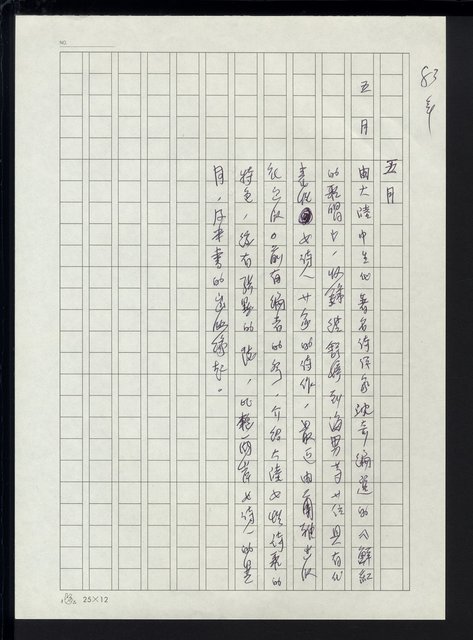 NO.
83年
五月
五月
由大陸中生代著名詩作家沈奇編選的《鮮紅
的歌唱》，收錄從舒婷到海男等廿位具有代
表性女詩人廿家的詩作，最近由爾雅出版
社出版。前有編者的序，介紹大陸女性詩歌的
特色，後有張默的跋，比較兩岸女詩人的異
同，及本書的出版緣起。
25×12